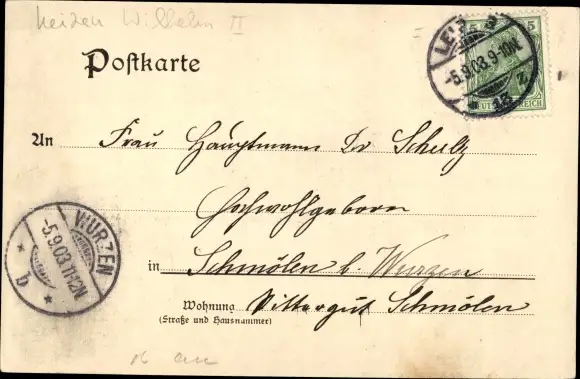 Wilhelm II
Postkarte
5 5
LEIPZIG
-5.9.03. 9-10N.
13
DEUTSCHES REICH
An Frau Hauptmann Dr Schulz
Hochwohlgeborn
in Schmölen b. Wurzen
Wohnung Rittergut Schmölen
(Straße und Hausnummer)
WURZEN
-5.9.03.11-12N.
* b *